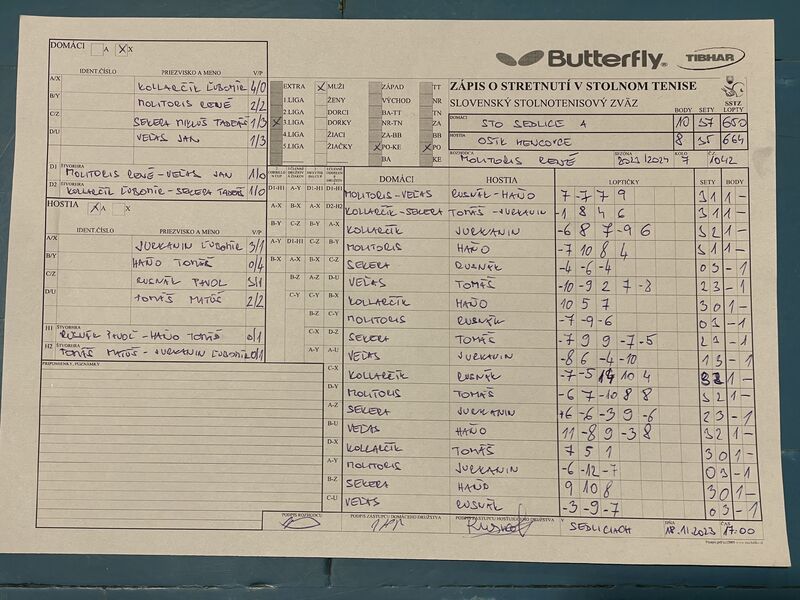 DOMÁCI A X
IDENT.ČÍSLO PRIEZVISKO A MENO V/P
A/X KOLLARČÍK ĽUBOMÍR 4/0
B/Y MOLITORIS RENÉ 2/2
C/Z SEKERA MIKLÚŠ TADEÁŠ 1/3
D/U VEĽAS JAN 1/3
D1 ŠTVORHRA MOLITORIS RENÉ - VEĽAS JAN 1/0
D2 ŠTVORHRA KOLLARČÍK ĽUBOMÍR - SEKERA TADEÁŠ 1/0
HOSTIA A X
IDENT.ČÍSLO PRIEZVISKO A MENO V/P
A/X JURKANIN ĽUBOMÍR 3/1
B/Y HAŇO TOMÁŠ 0/4
C/Z RUSNÁK PAVOL 3/1
D/U TOMÁŠ MATÚŠ 2/2
H1 ŠTVORHRA RUSNÁK PAVOL - HAŇO TOMÁŠ 0/1
H2 ŠTVORHRA TOMÁŠ MATÚŠ - JURKANIN ĽUBOMÍR 0/1
PRIPOMIENKY, POZNÁMKY
Butterfly TIBHAR
EXTRA X MUŽI ZÁPAD TT
1.LIGA ŽENY VÝCHOD NR
2.LIGA DORCI BA-TT TN
X 3.LIGA DORKY NR-TN ZA
4.LIGA ŽIACI ZA-BB BB
5.LIGA ŽIAČKY X PO-KE X PO
BA KE
ZÁPIS O STRETNUTÍ V STOLNOM TENISE
SLOVENSKÝ STOLNOTENISOVÝ ZVÄZ SSTZ
BODY SETY LOPTY
DOMÁCI STO SEDLICE A 10 37 650
HOSTIA OŠIK HENCOVCE 8 35 664
ROZHODCA MOLITORIS RENÉ SEZÓNA 2023/2024 KOLO 7 1042
DOMÁCI HOSTIA LOPTIČKY SETY BODY
D1-H1 MOLITORIS - VEĽAS RUSNÁK - HAŇO 7 -7 7 9 3 1 1 -
D2-H2 KOLLARČÍK - SEKERA TOMÁŠ - JURKANIN -1 8 4 6 3 1 1 -
KOLLARČÍK JURKANIN -6 8 7 -9 6 3 2 1 -
MOLITORIS HAŇO -7 10 8 4 3 1 1 -
SEKERA RUSNÁK -4 -6 -4 0 3 - 1
VEĽAS TOMÁŠ -10 -9 2 7 -8 2 3 - 1
KOLLARČÍK HAŇO 10 5 7 3 0 1 -
MOLITORIS RUSNÁK -7 -9 -6 0 3 - 1
SEKERA TOMÁŠ -7 9 9 -7 -5 2 3 - 1
VEĽAS JURKANIN -8 6 -4 -10 1 3 - 1
C-X KOLLARČÍK RUSNÁK -7 -5 14 10 4 3 2 1 -
D-Y MOLITORIS TOMÁŠ -6 7 -10 8 8 3 2 1 -
A-Z SEKERA JURKANIN 6 -6 -3 9 -6 2 3 - 1
B-U VEĽAS HAŇO 11 -8 9 -3 8 3 2 1 -
D-X KOLLARČÍK TOMÁŠ 7 5 1 3 0 1 -
A-Y MOLITORIS JURKANIN -6 -12 -7 0 3 - 1
B-Z SEKERA HAŇO 9 10 8 3 0 1 -
C-U VEĽAS RUSNÁK -3 -9 -7 0 3 - 1
PODPIS ROZHODCU PODPIS ZÁSTUPCU DOMÁCEHO DRUŽSTVA PODPIS ZÁSTUPCU HOSŤUJÚCEHO DRUŽSTVA V SEDLICIACH DŇA 18.11.2023 ČAS 17:00